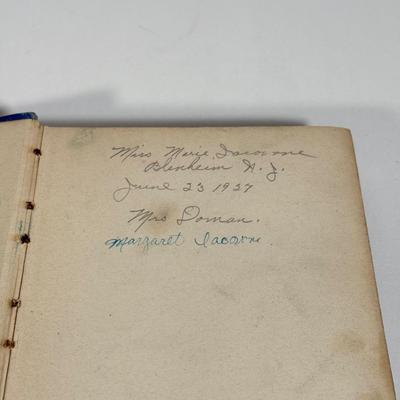 Miss Marie Iacovone
Blenheim N.J.
June 23 1937
Mrs Doman.
Margaret Iacovone.